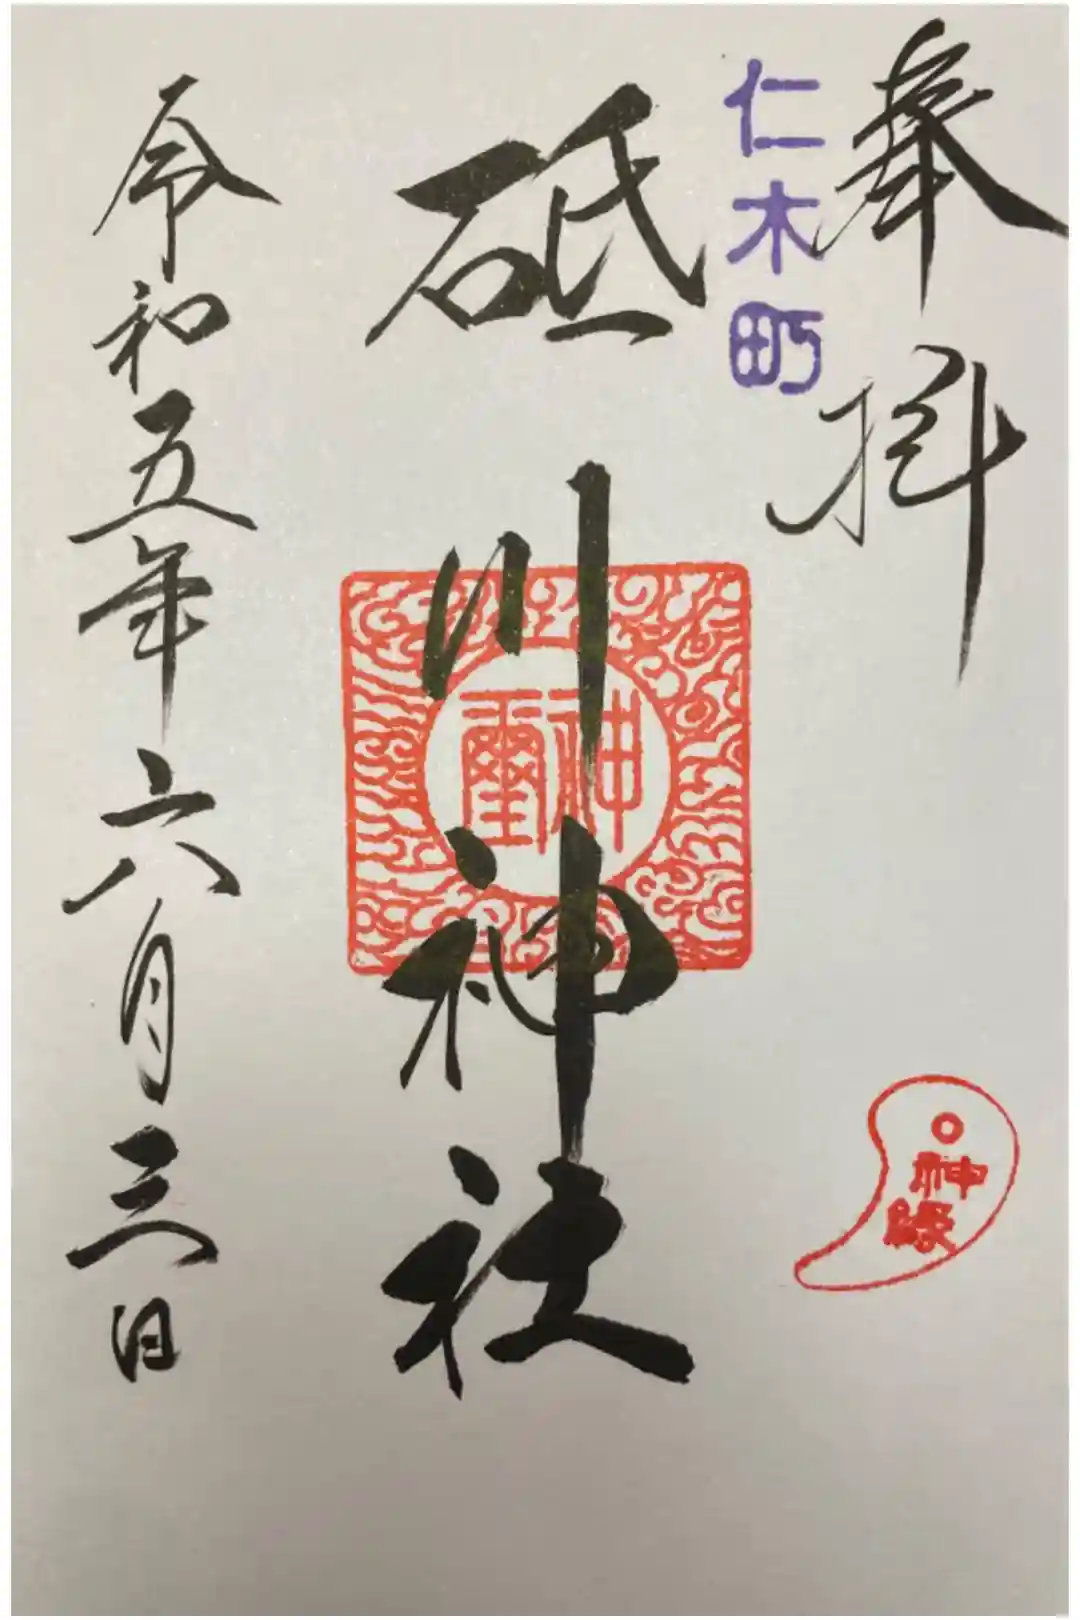 奉拝
仁木町
砥川神社
神璽
神縁
令和五年六月三日